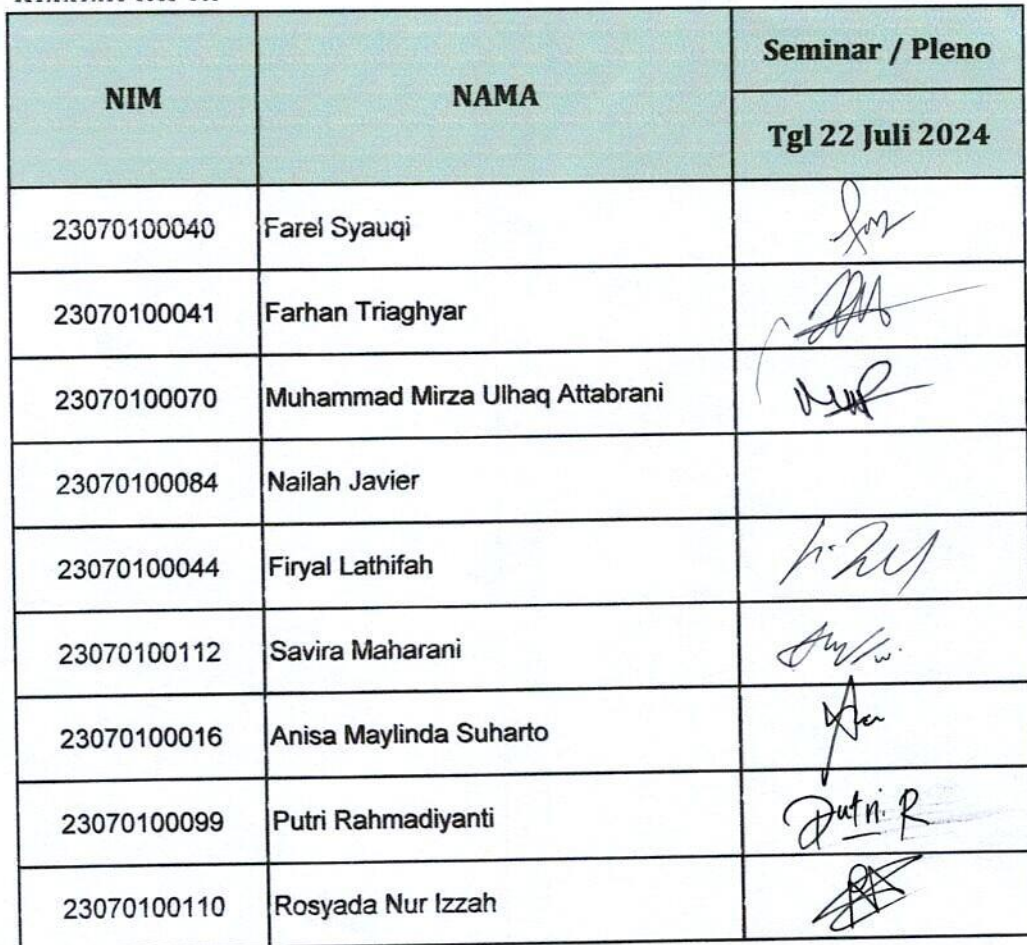 NIM NAMA Seminar / Pleno
Tgl 22 Juli 2024
23070100040 Farel Syauqi
23070100041 Farhan Triaghyar
23070100070 Muhammad Mirza Ulhaq Attabrani
23070100084 Nailah Javier
23070100044 Firyal Lathifah
23070100112 Savira Maharani
23070100016 Anisa Maylinda Suharto
23070100099 Putri Rahmadiyanti Putri R
23070100110 Rosyada Nur Izzah